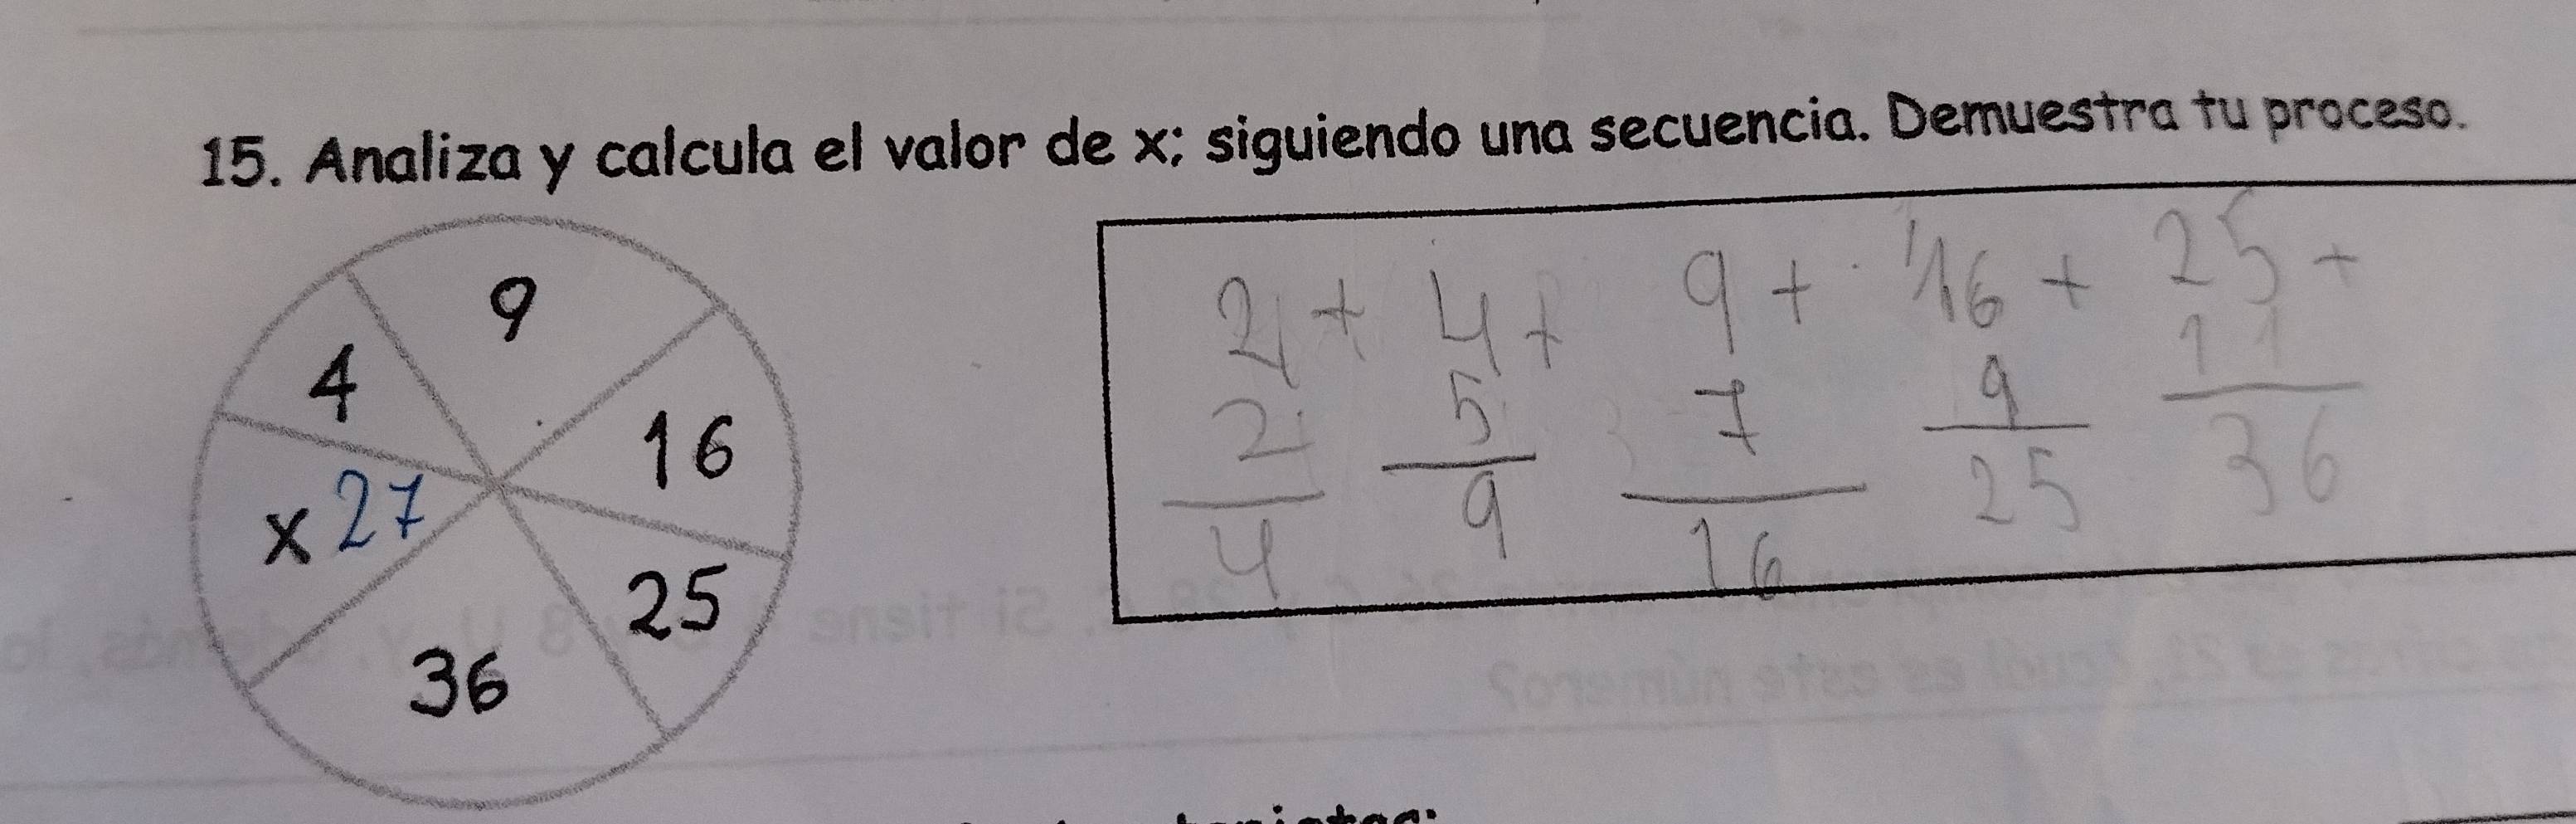 15. Analiza y calcula el valor de x; siguiendo una secuencia. Demuestra tu proceso.
9
4
16
x 27
25
36
2 + 4 + 9 + 16 + 25 +
2 5 7 9 11
4 9 16 25 36